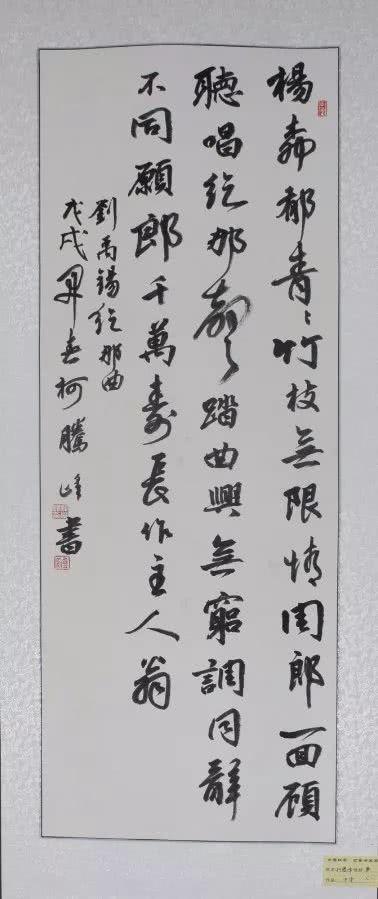 楊柳郁青々竹枝無限情周郎一回顧
聽唱紇那聲踏曲興無窮調同辭
不同願郎千萬壽長作主人翁
劉禹錫紇那曲
戊戌春柯騰峰書